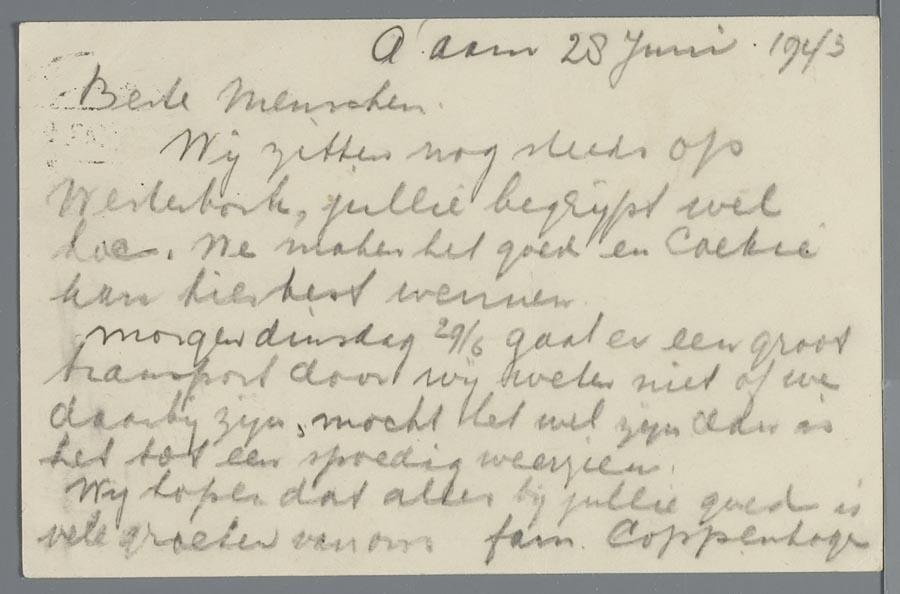 A'dam 28 Juni 1943
Beste Menschen.
Wij zitten nog steeds op
Westerbork, jullie begrijpt wel
hoe. We maken het goed en Coekie
kan hier best wennen.
Morgen dinsdag 29/6 gaat er een groot
transport door wij weten niet of we
daarbij zijn, mocht het wel zijn dan is
het tot een spoedig weerzien.
Wij hopen dat alles bij jullie goed is
vele groeten van ons fam. Coppenhage